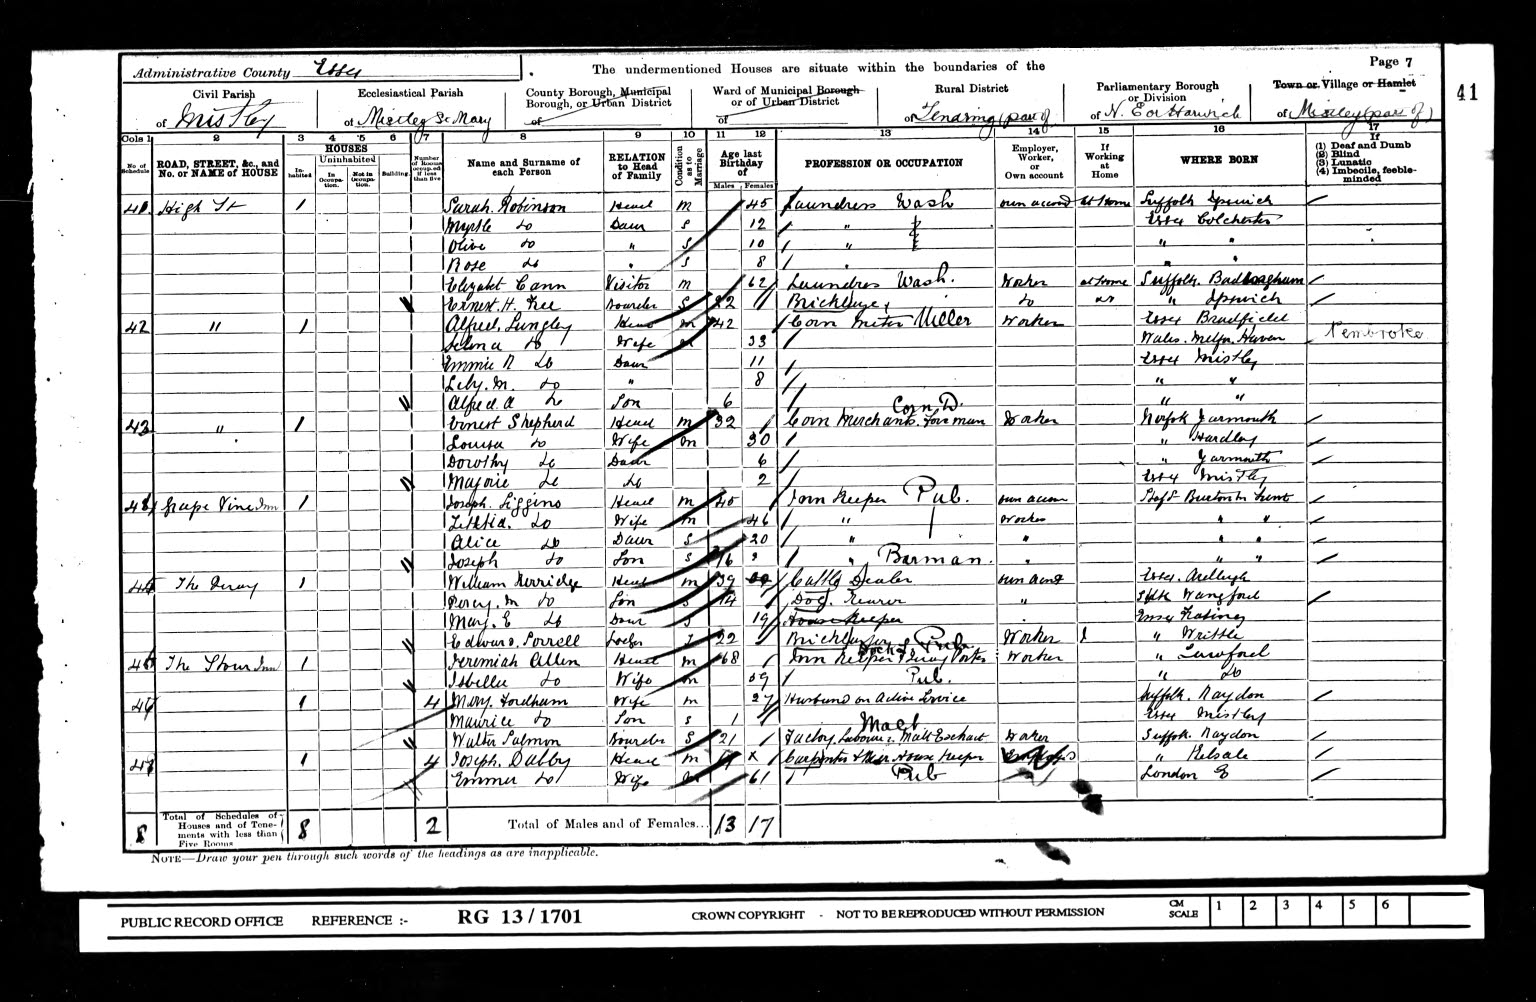 Administrative County Essex
The undermentioned Houses are situate within the boundaries of the
Page 7
41
Civil Parish
of Mistley
Ecclesiastical Parish
of Mistley St Mary
County Borough, Municipal
Borough, or Urban District
of
Ward of Municipal Borough
or of Urban District
of
Rural District
of Tendring (part of)
Parliamentary Borough
or Division
of N. E or Harwich
Town or Village or Hamlet
of Mistley (part of)
Cols 1 2 3 4 5 6 7 8 9 10 11 12 13 14 15 16 17
No. of Schedule
ROAD, STREET, &c., and No. or NAME of HOUSE
HOUSES
Inhabited
Uninhabited
In Occupation.
Not in Occupation.
Building.
Number of Rooms occupied if less than five
Name and Surname of each Person
RELATION to Head of Family
Condition as to Marriage
Age last Birthday of
Males Females
PROFESSION OR OCCUPATION
Employer, Worker, or Own account
If Working at Home
WHERE BORN
If
(1) Deaf and Dumb
(2) Blind
(3) Lunatic
(4) Imbecile, feeble-minded
High St 1 Sarah Robinson Head M 45 Laundress Wash own account at Home Suffolk Ipswich
Myrtle do Daur S 12 " Essex Colchester
Olive do " S 10 " " "
Rose do " S 8 " " "
Elizabet Cann Visitor M 62 Laundress Wash. Worker at Home Suffolk Badingham
Ernest. H. Free Boarder S 22 Bricklayer do do " Ipswich
42 " 1 Alfred. Lungley Head M 42 Corn Miller Worker Essex Bradfield
Selina do Wife M 33 Wales. Milfn. Haven Pembroke
Emmie R do Daur 11 Essex Mistley
Lily. M. do " 8 " "
Alfred. A do Son 6 " "
43 " 1 Ernest Shepherd Head M 32 Corn Merchants. Foreman Corn D. Worker Norfolk Yarmouth
Louisa do Wife M 30 " Hardley
Dorothy do Daur 6 " Yarmouth
Marjorie do do 2 Essex Mistley
Grape Vine Inn 1 Joseph. Siggins Head M 40 Inn Keeper Pub. own accou Staff Burton on Trent
Letitia. do Wife M 46 " Worker " "
Alice do Daur S 20 " " " "
Joseph do Son S 16 " Barman. " " "
1 William Kerridge Head M 39 Cattle Dealer own acnt Essex. Ardleigh
Percy. M do Son S 14 Dog. " Suffk Wangford
Mary. E do Daur S 19 House Keeper Essex
Edward. Sorrell 22 Bricklayer Worker " Writtle
The Stour Inn 1 Jeremiah Allen Head M 68 Inn Keeper & Quay Porter Dock L Pub Worker " Lawford
Isbella do Wife M 59 Pub. " do
1 4 Mary. Fordham Wife M 27 Husband on Active Service Suffolk. Raydon
Maurice do Son S 1 Essex Mistley
Walter Salmon Boarder S 21 Factory. Labourer. Malt Extract Worker Suffolk. Raydon
1 4 Joseph. Dabby Head M Carpenter & Beer House Keeper " Kelsale
Emmer do Wife M 61 Pub London E
8
Total of Schedules of Houses and of Tenements with less than Five Rooms
8 2
Total of Males and of Females... 13 17
NOTE—Draw your pen through such words of the headings as are inapplicable.
PUBLIC RECORD OFFICE REFERENCE :- RG 13/1701 CROWN COPYRIGHT - NOT TO BE REPRODUCED WITHOUT PERMISSION CM SCALE 1 2 3 4 5 6